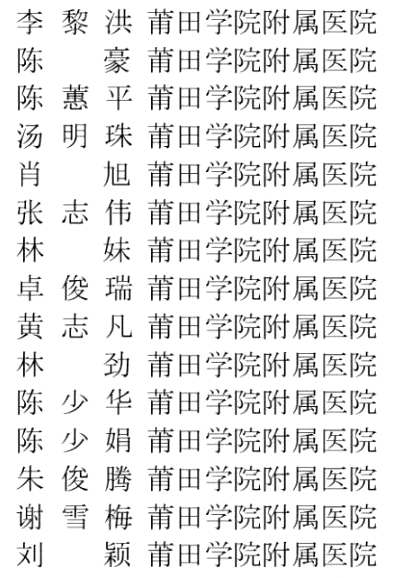 李黎洪 莆田学院附属医院
陈豪 莆田学院附属医院
陈蕙平 莆田学院附属医院
汤明珠 莆田学院附属医院
肖旭 莆田学院附属医院
张志伟 莆田学院附属医院
林妹 莆田学院附属医院
卓俊瑞 莆田学院附属医院
黄志凡 莆田学院附属医院
林劲 莆田学院附属医院
陈少华 莆田学院附属医院
陈少娟 莆田学院附属医院
朱俊腾 莆田学院附属医院
谢雪梅 莆田学院附属医院
刘颖 莆田学院附属医院